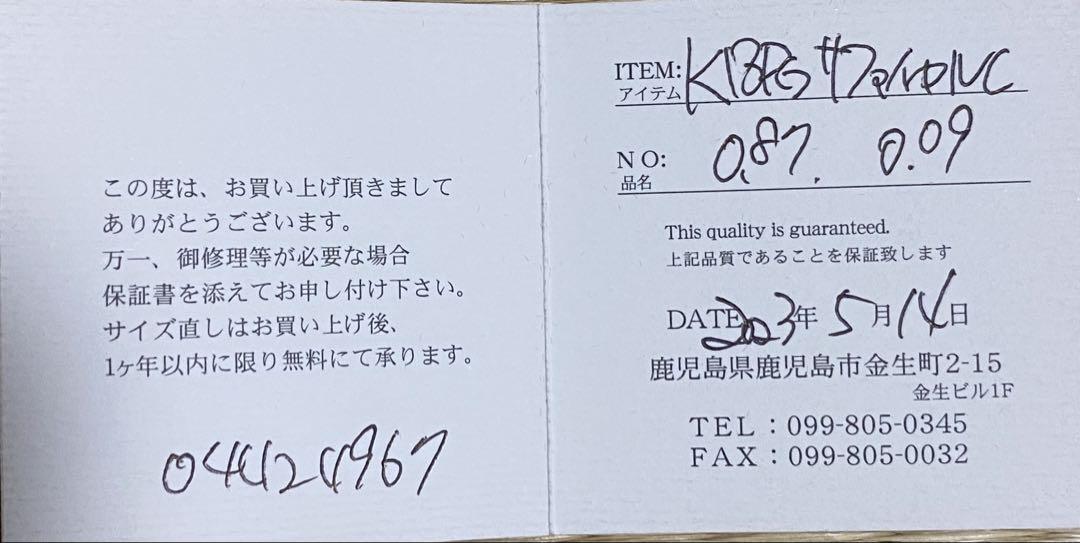 この度は、お買い上げ頂きまして
ありがとうございます。
万一、御修理等が必要な場合
保証書を添えてお申し付け下さい。
サイズ直しはお買い上げ後、
1ヶ年以内に限り無料にて承ります。
04424967
ITEM: K18PG サファイヤ
アイテム
NO: 0.87. 0.09
品名
This quality is guaranteed.
上記品質であることを保証致します
DATE 2023年 5月 14日
鹿児島県鹿児島市金生町2-15
金生ビル1F
TEL：099-805-0345
FAX：099-805-0032